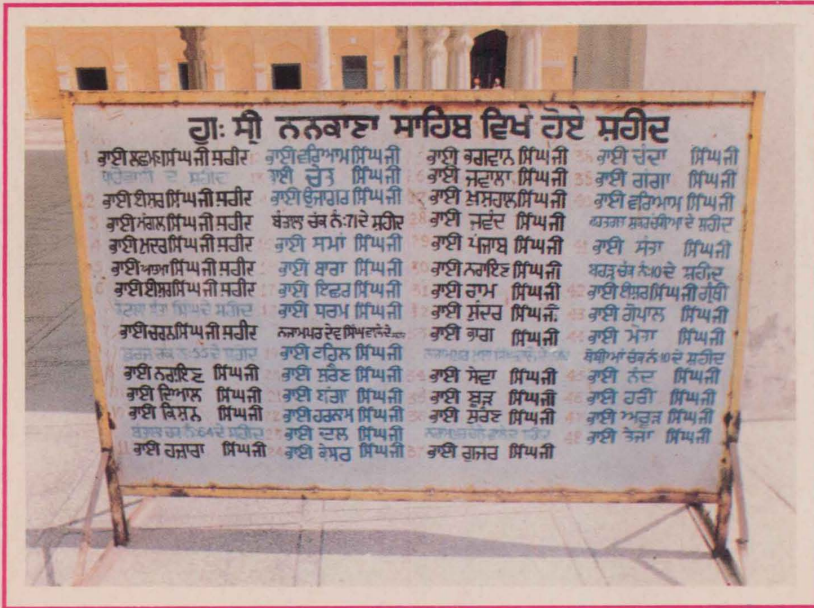 ਗੁ: ਸ੍ਰੀ ਨਨਕਾਣਾ ਸਾਹਿਬ ਵਿਖੇ ਹੋਏ ਸ਼ਹੀਦ
1 ਭਾਈ ਲਛਮਣ ਸਿੰਘ ਜੀ ਸ਼ਹੀਦ
ਦੇ ਸ਼ਹੀਦ
2 ਭਾਈ ਈਸ਼ਰ ਸਿੰਘ ਜੀ ਸ਼ਹੀਦ
3 ਭਾਈ ਮੰਗਲ ਸਿੰਘ ਜੀ ਸ਼ਹੀਦ
4 ਭਾਈ ਮਦਰ ਸਿੰਘ ਜੀ ਸ਼ਹੀਦ
5 ਭਾਈ ਆਤਮਾ ਸਿੰਘ ਜੀ ਸ਼ਹੀਦ
6 ਭਾਈ ਈਸ਼ਰ ਸਿੰਘ ਜੀ ਸ਼ਹੀਦ
ਦੇ ਸ਼ਹੀਦ
ਭਾਈ ਚਰਨ ਸਿੰਘ ਜੀ ਸ਼ਹੀਦ
ਚੱਕ ਨੰ: 55 ਦੇ ਸ਼ਹੀਦ
ਭਾਈ ਨਰਾਇਣ ਸਿੰਘ ਜੀ
ਭਾਈ ਦਿਆਲ ਸਿੰਘ ਜੀ
10 ਭਾਈ ਕਿਸ਼ਨ ਸਿੰਘ ਜੀ
ਚੱਕ ਨੰ: 64 ਦੇ ਸ਼ਹੀਦ
11 ਭਾਈ ਹਜ਼ਾਰਾ ਸਿੰਘ ਜੀ
ਭਾਈ ਵਰਿਆਮ ਸਿੰਘ ਜੀ
ਭਾਈ ਚੇਤ ਸਿੰਘ ਜੀ
ਭਾਈ ਉਜਾਗਰ ਸਿੰਘ ਜੀ
ਬੰਤਲ ਚੱਕ ਨੰ: 71 ਦੇ ਸ਼ਹੀਦ
ਭਾਈ ਸਮਾਂ ਸਿੰਘ ਜੀ
ਭਾਈ ਬਾਰਾ ਸਿੰਘ ਜੀ
ਭਾਈ ਇਛਰ ਸਿੰਘ ਜੀ
ਭਾਈ ਧਰਮ ਸਿੰਘ ਜੀ
ਨਜਾਮਪੁਰ ਦੇਵਾ ਸਿੰਘ ਵਾਲੇ ਦੇ
ਭਾਈ ਟਹਿਲ ਸਿੰਘ ਜੀ
ਭਾਈ ਸੁਰੈਣ ਸਿੰਘ ਜੀ
ਭਾਈ ਬੱਗਾ ਸਿੰਘ ਜੀ
ਭਾਈ ਹਰਨਾਮ ਸਿੰਘ ਜੀ
ਭਾਈ ਦਲ ਸਿੰਘ ਜੀ
24 ਭਾਈ ਕੇਸਰ ਸਿੰਘ ਜੀ
ਭਾਈ ਭਗਵਾਨ ਸਿੰਘ ਜੀ
ਭਾਈ ਜਵਾਲਾ ਸਿੰਘ ਜੀ
ਭਾਈ ਖੁਸ਼ਹਾਲ ਸਿੰਘ ਜੀ
28 ਭਾਈ ਜਵੰਦ ਸਿੰਘ ਜੀ
29 ਭਾਈ ਪੰਜਾਬ ਸਿੰਘ ਜੀ
30 ਭਾਈ ਨਰਾਇਣ ਸਿੰਘ ਜੀ
31 ਭਾਈ ਰਾਮ ਸਿੰਘ ਜੀ
32 ਭਾਈ ਸੁੰਦਰ ਸਿੰਘ ਜੀ
ਭਾਈ ਭਾਗ ਸਿੰਘ ਜੀ
34 ਭਾਈ ਸੇਵਾ ਸਿੰਘ ਜੀ
35 ਭਾਈ ਬੂੜ ਸਿੰਘ ਜੀ
36 ਭਾਈ ਸੁਰੈਣ ਸਿੰਘ ਜੀ
37 ਭਾਈ ਗੁਜਰ ਸਿੰਘ ਜੀ
38 ਭਾਈ ਚੰਦਾ ਸਿੰਘ ਜੀ
35 ਭਾਈ ਗੰਗਾ ਸਿੰਘ ਜੀ
40 ਭਾਈ ਵਰਿਆਮ ਸਿੰਘ ਜੀ
ਦੇ ਸ਼ਹੀਦ
41 ਭਾਈ ਸੰਤਾ ਸਿੰਘ ਜੀ
ਚੱਕ ਨੰ: 10 ਦੇ ਸ਼ਹੀਦ
42 ਭਾਈ ਈਸ਼ਰ ਸਿੰਘ ਜੀ ਗ੍ਰੰਥੀ
43 ਭਾਈ ਗੋਪਾਲ ਸਿੰਘ ਜੀ
44 ਭਾਈ ਮੋਤਾ ਸਿੰਘ ਜੀ
ਥੋਥੀਆਂ ਚੱਕ ਨੰ: 10 ਦੇ ਸ਼ਹੀਦ
45 ਭਾਈ ਨੰਦ ਸਿੰਘ ਜੀ
46 ਭਾਈ ਹਰੀ ਸਿੰਘ ਜੀ
47 ਭਾਈ ਅਰੂੜ ਸਿੰਘ ਜੀ
48 ਭਾਈ ਤੇਜਾ ਸਿੰਘ ਜੀ